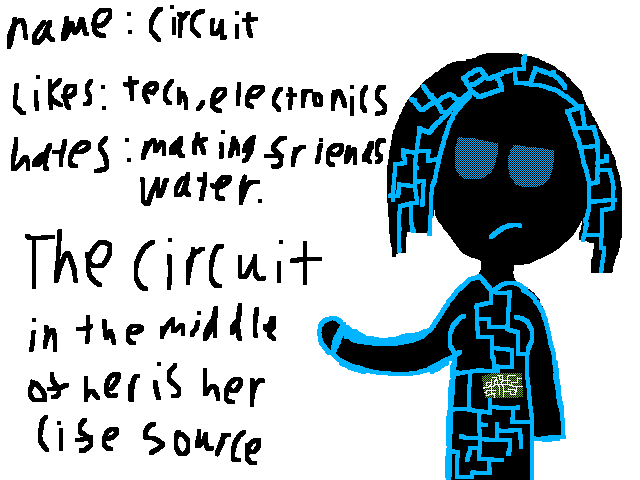 name: circuit
likes: tech, electronics
hates: making friends
water.
The circuit
in the middle
of her is her
life source